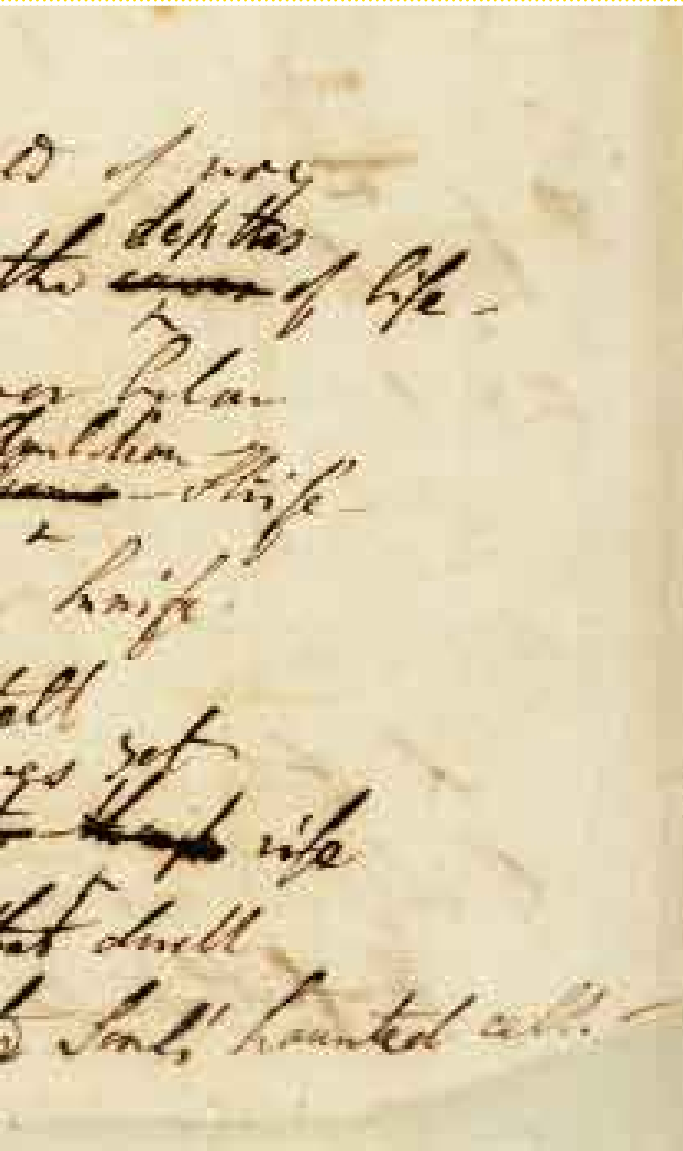 of woe
depths
the of life -
below
- Strife -
knife.
tell
yet
rife
dwell
Soul's haunted cell. -